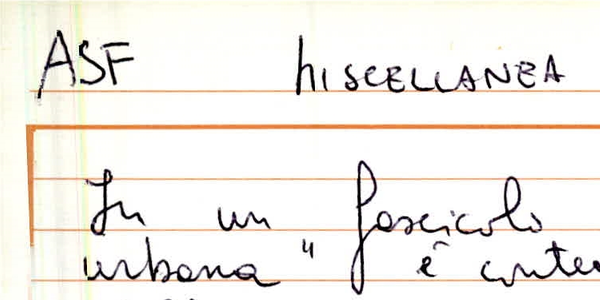 ASF MISCELLANEA
In un fascicolo
urbana" è